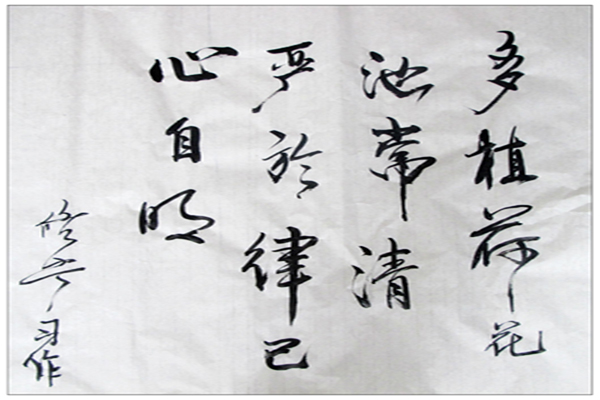 多植荷花
池常清
严於律己
心自明
习作